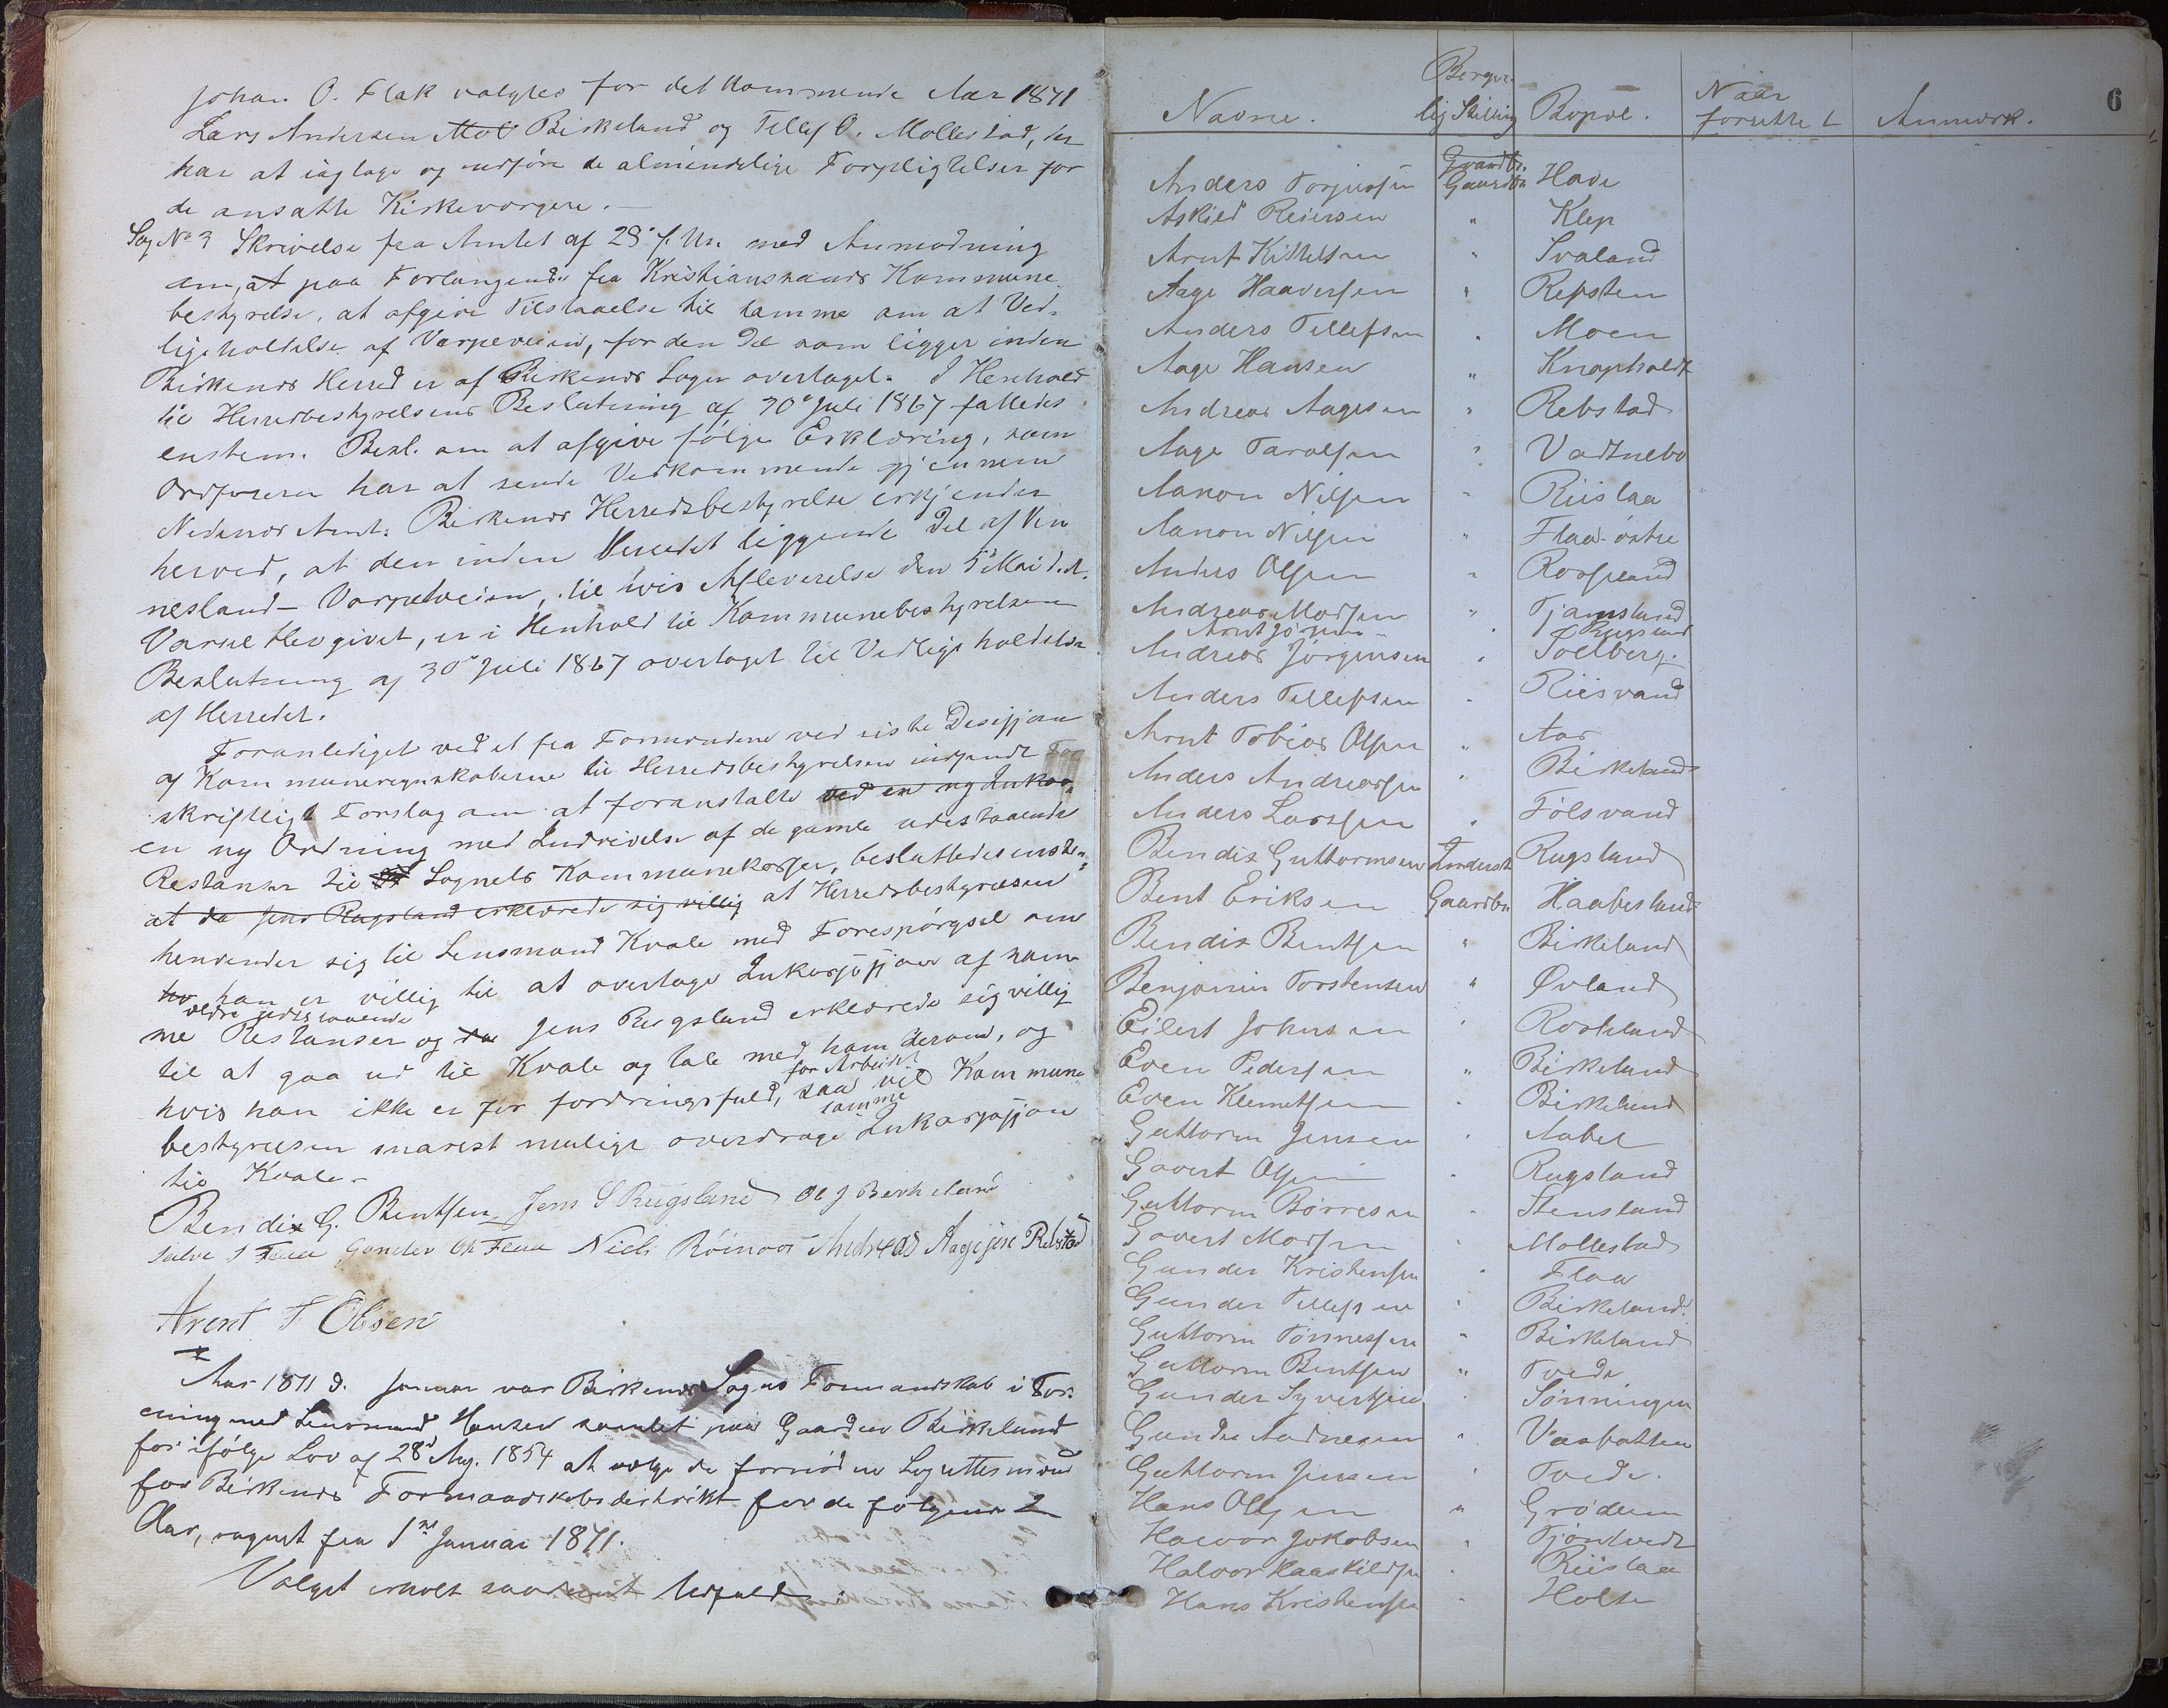 Johan O. Flak valgtes for det kommende Aar 1871
Lars Andersen Mol Birkeland og Tellef O. Mollestad, der
har at iagtage og udføre de almindelige Forpligtelser for
de ansatte Kirkeværgere. —
Sag No 3 Skrivelse fra Amtet af 29de f. M. med Anmodning
om, at paa Forlangende fra Kristianssands Kommune
bestyrelse, at afgive Tilstaaelse til samme om at Ved-
ligeholdelse af Varpeveien, for den Del som ligger inden
Birkenæs Herred er af Birkenæs Sogn overtaget. I Henhold
til Herredsbestyrelsens Beslutning af 30te Juli 1867 fattedes
enstem. Besl. om at afgive følge Erklæring, som
Ordføreren har at sende Vedkommende gjennem
Nedenæs Amt: Birkenæs Herredsbestyrelse erkjender
herved, at den inden Herredet liggende Del af Ven
nesland - Varpeveien, til hvis Afleverelse den 5te Mai d.A.
Varsel blev givet, er i Henhold til Kommunebestyrelsens
Beslutning af 30te Juli 1867 overtaget til Vedligeholdelse
af Herredet.
Foranlediget ved et fra Formændene ved sidste Desisjon
af Kommuneregnskaberne til Herredsbestyrelsen indsendt For
skriftligt Forslag om at foranstalte ved en ny Inkas-
en ny Ordning med Inddrivelse af de gamle udestaaende
Restanser til Sognets Kommunekasser, besluttedes enstem:
at da Jens Rugsland erklærede sig villig at Herredsbestyrelsen
henvender sig til Lensmand Kvale med Forespørgsel om
hv han er villig til at overtage Inkassasjon af sam-
ældre udestaaende
me Restanser og da Jens Rugsland erklærede sig villig
til at gaa ud til Kvale og tale med ham derom, og
for Arbeidet
hvis han ikke er for fordringsfuld, saa vil Kommune
samme
bestyrelsen snarest mulige overdrage Inkassasjon
til Kvale.
Bendix G. Bentsen Jens S Rugsland Ole J Berkeland
Salve T Flaa Gunder Ch Flaa Niels Röinaas Andreas Aagesen Rebstad
Arent T Olsen
Aar 1871 d. Januar var Birkenæs Sogns Formandskab i For-
ening med Lensmand Hansen samlet paa Gaarden Birkeland
for ifølge Lov af 28de Aug. 1854 at vælge de fornødne Lagrettesmænd
for Birkenæs Formandskabsdistrikt for de følgende 2
Aar, regnet fra 1ste Januar 1871.
Valget erholt saadant Udfald:
6
Navne. Borger- lig Stilling Bopæl. Naar forrettet Anmærk.
Anders Torjussen Gaardbr. Have
Askild Reiersen " Klep
Arnt Kittelsen " Svaland
Aage Haaversen " Repsten
Anders Tellefsen " Moen
Aage Hansen " Knapholdt
Andreas Aagesen " Rebstad
Aage Taralsen " Vadtnebo
Aanon Nilsen " Riislaa
Aanon Nilsen " Flaa-østre
Anders Olsen " Rosseland
Andreas Madsen " Tjamsland
Arnt Jörgen " Rugsland
Andreas Jörgensen " Sollberg.
Anders Tellefsen " Riisvand
Arnt Tobias Olsen " Aas
Anders Andreassen " Birkeland
Anders Larsen " Fölsvand
Bendix Guttormsen Inderst. Rugsland
Bent Eriksen Gaardbr. Haabesland
Bendix Bentsen " Birkeland
Benjamin Torstensen " Øvland
Eilert Johnsen " Roskeland
Even Pedersen " Birkeland
Even Klemetsen " Birkeland
Guttorm Jensen " Aabel
Govert Olsen " Rugsland
Guttorm Börresen " Stensland
Govert Madsen " Mollestad
Gunder Kristensen " Flaa
Gunder Tellefsen " Birkeland
Guttorm Tönnesen " Birkeland
Guttorm Bentsen " Tvede
Gunder Syvertsen " Sönningen
Gunder Aadnesen " Vasbatten
Guttorm Jensen " Tvede.
Hans Olsen " Grødem
Halvor Jakobsen " Tjöntvedt
Halvor Haaskildsen " Riislaa
Hans Kristensen " Holte